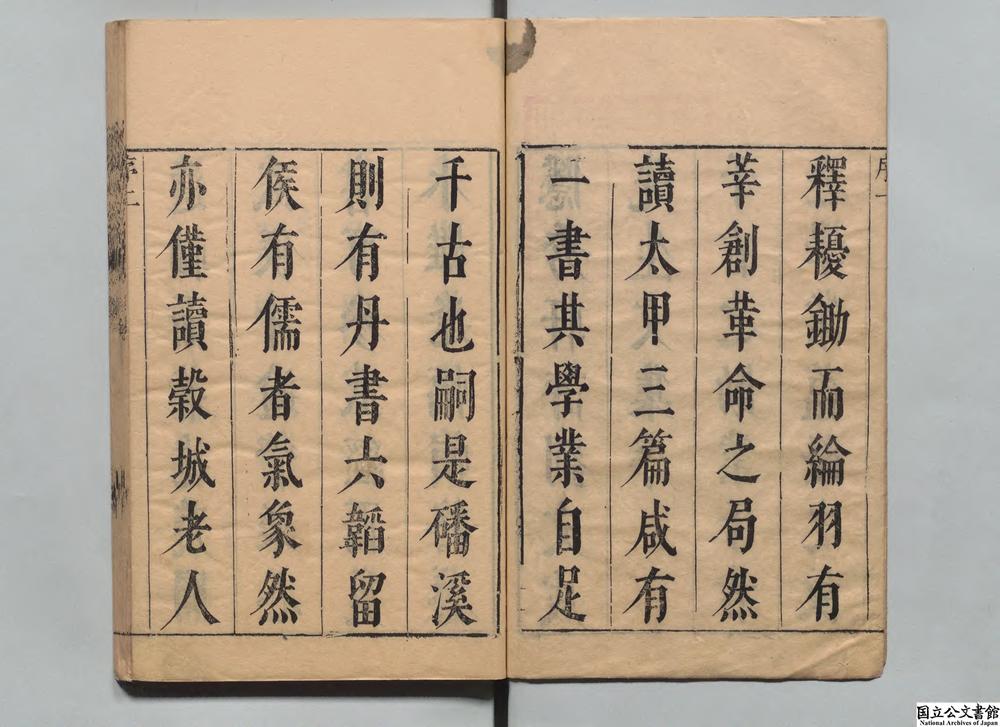 釋耰鋤而綸羽有
莘創革命之局然
讀太甲三篇咸有
一書其學業自足
千古也嗣是磻溪
則有丹書六韜留
侯有儒者氣象然
亦僅讀榖城老人
序一
序二
国立公文書館
National Archives of Japan